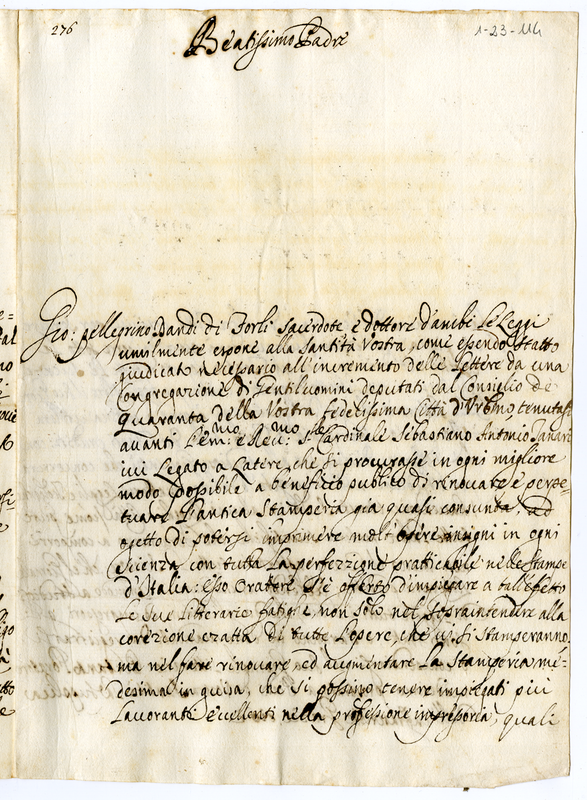 276
1-23-114
Beatissimo Padre
Gio: Pellegrino Dandi di Forlì Sacerdote e dottore d'ambe Le Leggi
umilmente espone alla Santità Vostra, come essendo stato
giudicato necessario all'incremento delle Lettere da una
Congregazione di Gentiluomini deputati dal Consiglio de
Quaranta della Vostra fedelissima Città d'Urbino, tenutasi
avanti l'Em:mo e Rev:mo Sr Cardinale Sebastiano Antonio Tanara
ivi Legato a Latere, che si procurasse in ogni migliore
modo possibile a beneficio publico di renovare e perpe-
tuare l'antica Stamperia già quasi consunta, ad
oggetto di potersi imprimere molt'opere insigni in ogni
scienza con tutta La perfezzione pratticabile nelle Stampe
d'Italia: esso Oratore s'è offerto d'impiegare a tall'effetto
Le sue litterarie fatighe non solo nel sopraintendere alla
corezione ezatta di tutte l'opere, che ivi si stamperanno,
ma nel fare rinovare, ed augmentare La Stamperia me-
desima in guisa, che si possino tenere impiegati più
Lavoranti eccellenti nella professione impressoria, quali